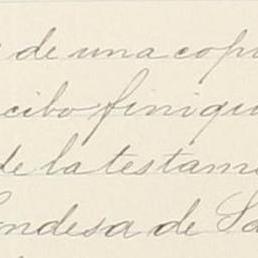 de una copi
cibo finiqu
de la testam
ondesa de Sa